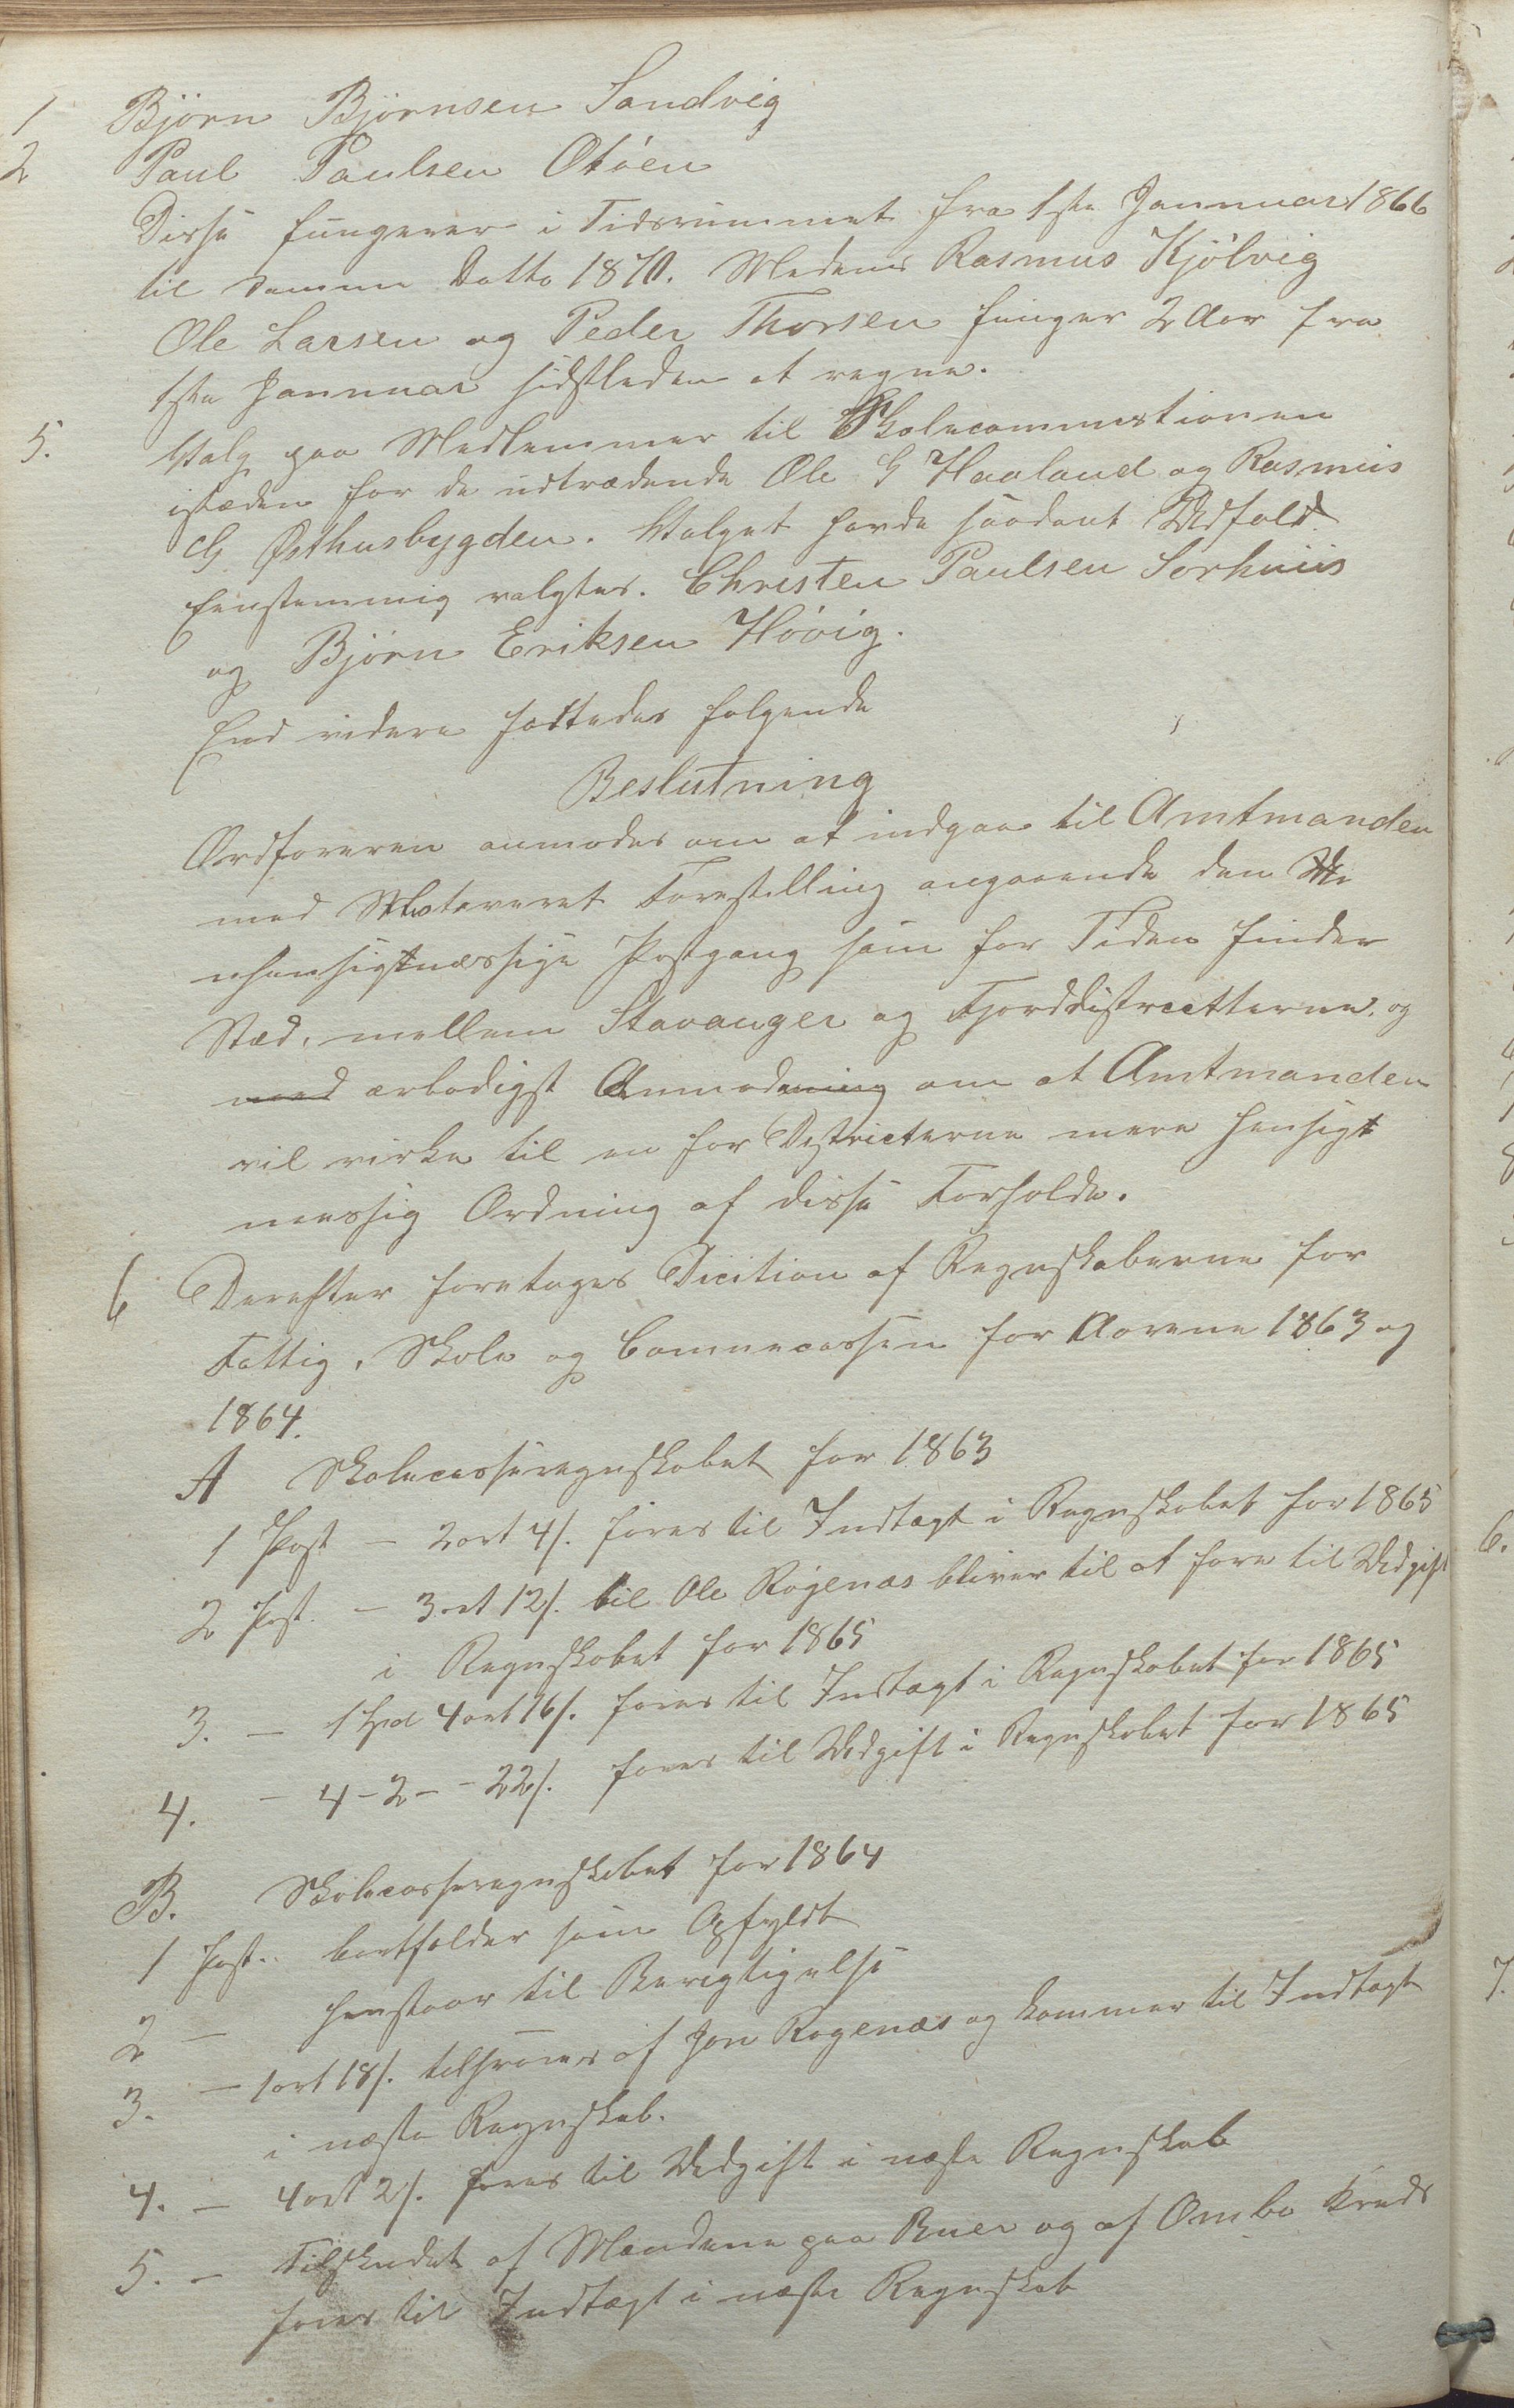 1 Björn Bjørnsen Sandvig
2 Paul Paulsen Otöen
Disse fungerer i Tidsrummet fra 1ste Jannuar 1866
til samme Datto 1870. Medens Rasmus Kjölvig
Ole Larsen og Peder Thorsen funger 2 Aar fra
1ste Jannuar sidstleden at regne.
5. Valg paa Medlemmer til Skolecommistionen
istæden for de udtrædende Ole G Haaland og Rasmus
G Østhusbygden. Valget havde saadant Udfald
Eenstemmig valgtes. Christen Paulsen Sorhuus
og Björn Eriksen Hövig.
End videre fattedes folgende
Beslutning
Ordforeren anmodes om at indgaa til Amtmanden
med Motereret Forestilling angaaende den U
hensigtmæssige Postgang som for Tiden finder
Sted, mellem Stavanger og Fjorddistrictterne, og
med ærbodigst Anmodning om at Amtmanden
vil virke til en for Districterne mere hensigt
mæssig Ordning af disse Forholde.
6 Derefter foretages Dicition af Regnskaberne for
Fattig, Skole og Comunecassen for Aarene 1863 og
1864.
A Skolecasseregnskabet for 1863
1 Post - 2 ort 4/. fores til Indtægt i Regnskabet for 1865
2 Post. - 3 ort 12/. til Ole Rögenæs bliver til at fore til Udgift
i Regnskabet for 1865
3. - 1 Spd 4 ort 16/. fores til Indtægt i Regnskabet for 1865
4. - 4 - 2 - - 22/. fores til Udgift i Regnskabet for 1865
B. Skolecasseregnskabet for 1864
1 Post. bortfalder som Opfyldt
2 - henstaar til Berigtigelse
3. - 1 ort 18/. tilsvares af Jon Rogenæs og kommer til Indtægt
i næste Regnskab.
4. - 4 ort 2/. fores til Udgift i næste Regnskab
5. - Tilskudet af Mændene paa Buer og af Ombo Kreds
fores til Indtægt i næste Regnskab
6.
7.